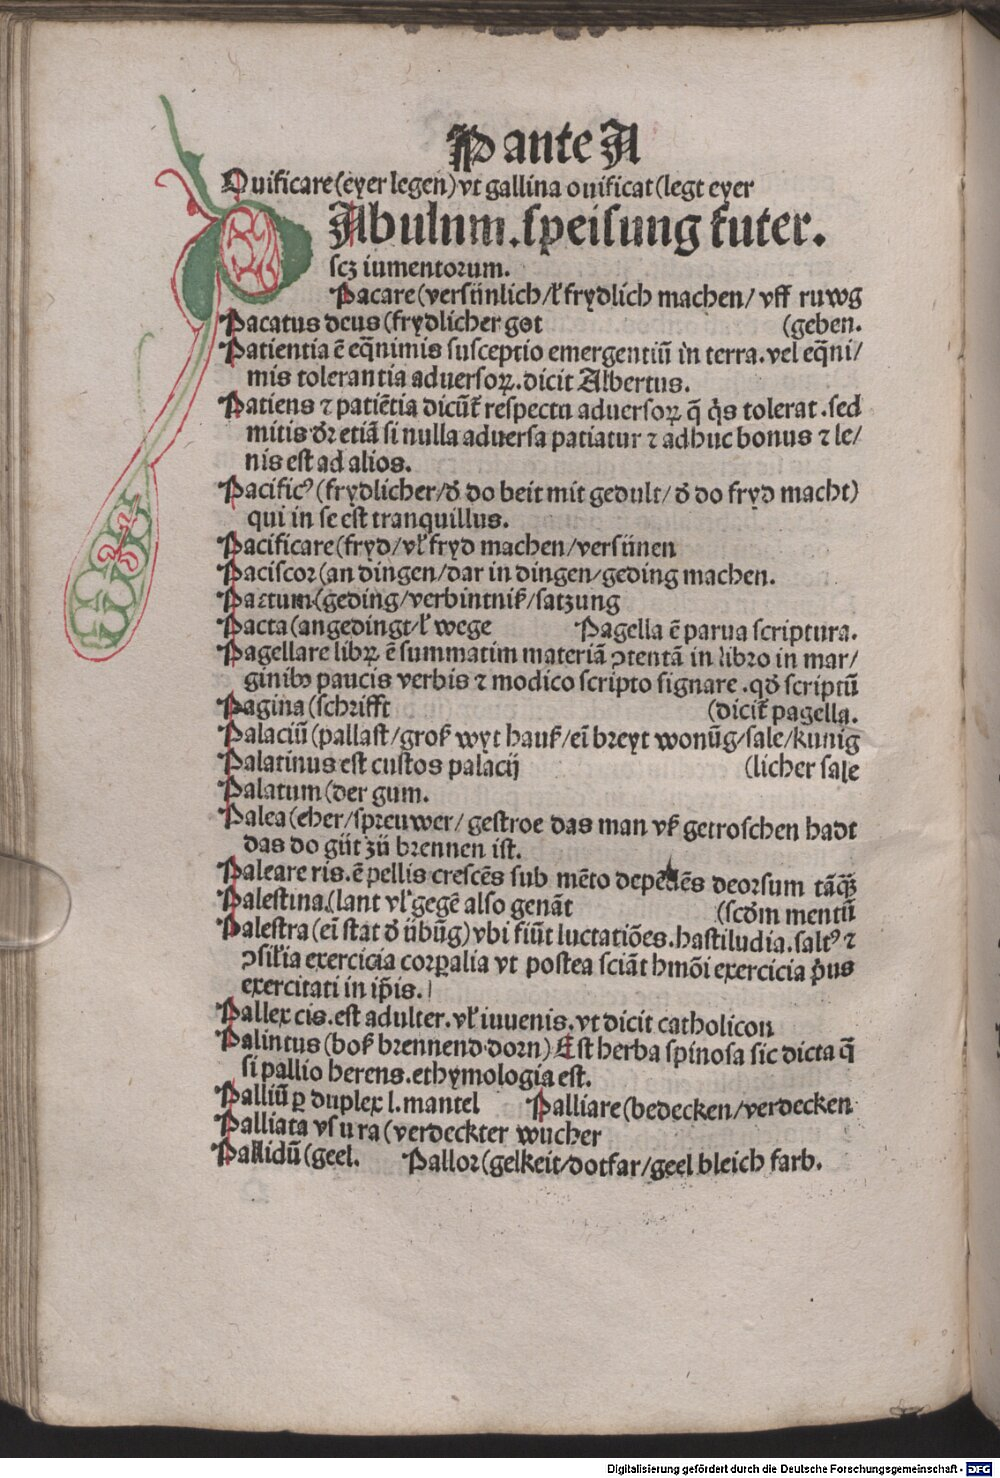 P ante A
Ouificare (eyer legen) vt gallina ouificat (legt eyer
Abulum. speisung futer.
scz iumentorum.
Pacare (versünlich/ł frydlich machen/ vff ruwg
Pacatus deus (frydlicher got (geben.
Patientia ē eq̄nimis susceptio emergentiū in terra. vel eq̄ni/
mis tolerantia aduersoꝝ. dicit Albertus.
Patiens ⁊ patiētia dicūt̄ respectu aduersoꝝ q̄ q̇s tolerat. sed
mitis dꝛ etiā si nulla aduersa patiatur ⁊ adhuc bonus ⁊ le/
nis est ad alios.
Pacificꝰ (frydlicher/ď do beit mit gedult/ ď do fryd macht)
qui in se est tranquillus.
Pacificare (fryd/vł fryd machen/versünen
Paciscor (an dingen/dar in dingen/geding machen.
Pactum (geding/verbintniß/satzung
Pacta (angedingt/ł wege Pagella ē parua scriptura.
Pagellare libꝝ ē summatim materiā ꝯtentā in libro in mar/
ginibꝰ paucis verbis ⁊ modico scripto signare. qď scriptū
Pagina (schrifft (dicit̄ pagella.
Palaciū (pallast/groß wyt hauß/eī breyt wonūg/sale/kunig
Palatinus est custos palacij (licher sale
Palatum (der gum.
Palea (eher/spreuwer/ gestroe das man vß getroschen hadt
das do güt zü brennen ist.
Paleare ris. ē pellis crescēs sub mēto depēdēs deorsum tāq̄ꝫ
Palestina. (lant vł gegē also genāt (scďm mentū
Palestra (eī stat ď übūg) vbi fiūt luctatiōes. hastiludia. saltꝰ ⁊
ꝯsilia exercicia corꝑalia vt postea sciāt hmōi exercicia p̄us
exercitati in ip̄is.
Pallex cis. est adulter. vł iuuenis. vt dicit catholicon
Palintus (boß brennend dorn) Est herba spinosa sic dicta q̄
si pallio herens. ethymologia est.
Palliū ꝑ duplex l. mantel Palliare (bedecken/verdecken
Palliata vsura (verdeckter wucher
Pallidū (geel. Pallor (gelkeit/dotfar/geel bleich farb.
Digitalisierung gefördert durch die Deutsche Forschungsgemeinschaft - DFG